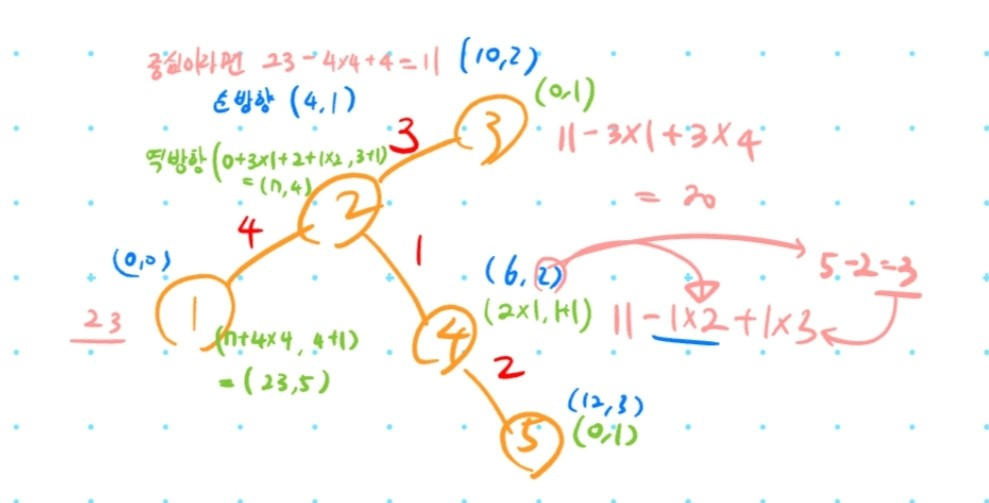 중심이라면 23-4×4+4=11 (10,2)
순방향 (4,1)
(0,1)
3
3
11-3×1+3×4
= 20
역방향 (0+3×1+2+1×2, 3+1)
= (7,4)
2
4
1
(0,0)
1
23
(7+4×4, 4+1)
= (23,5)
(6,2)
(2×1, 1+1)
4
5-2=3
11-1×2+1×3
2
(12,3)
(0,1)
5